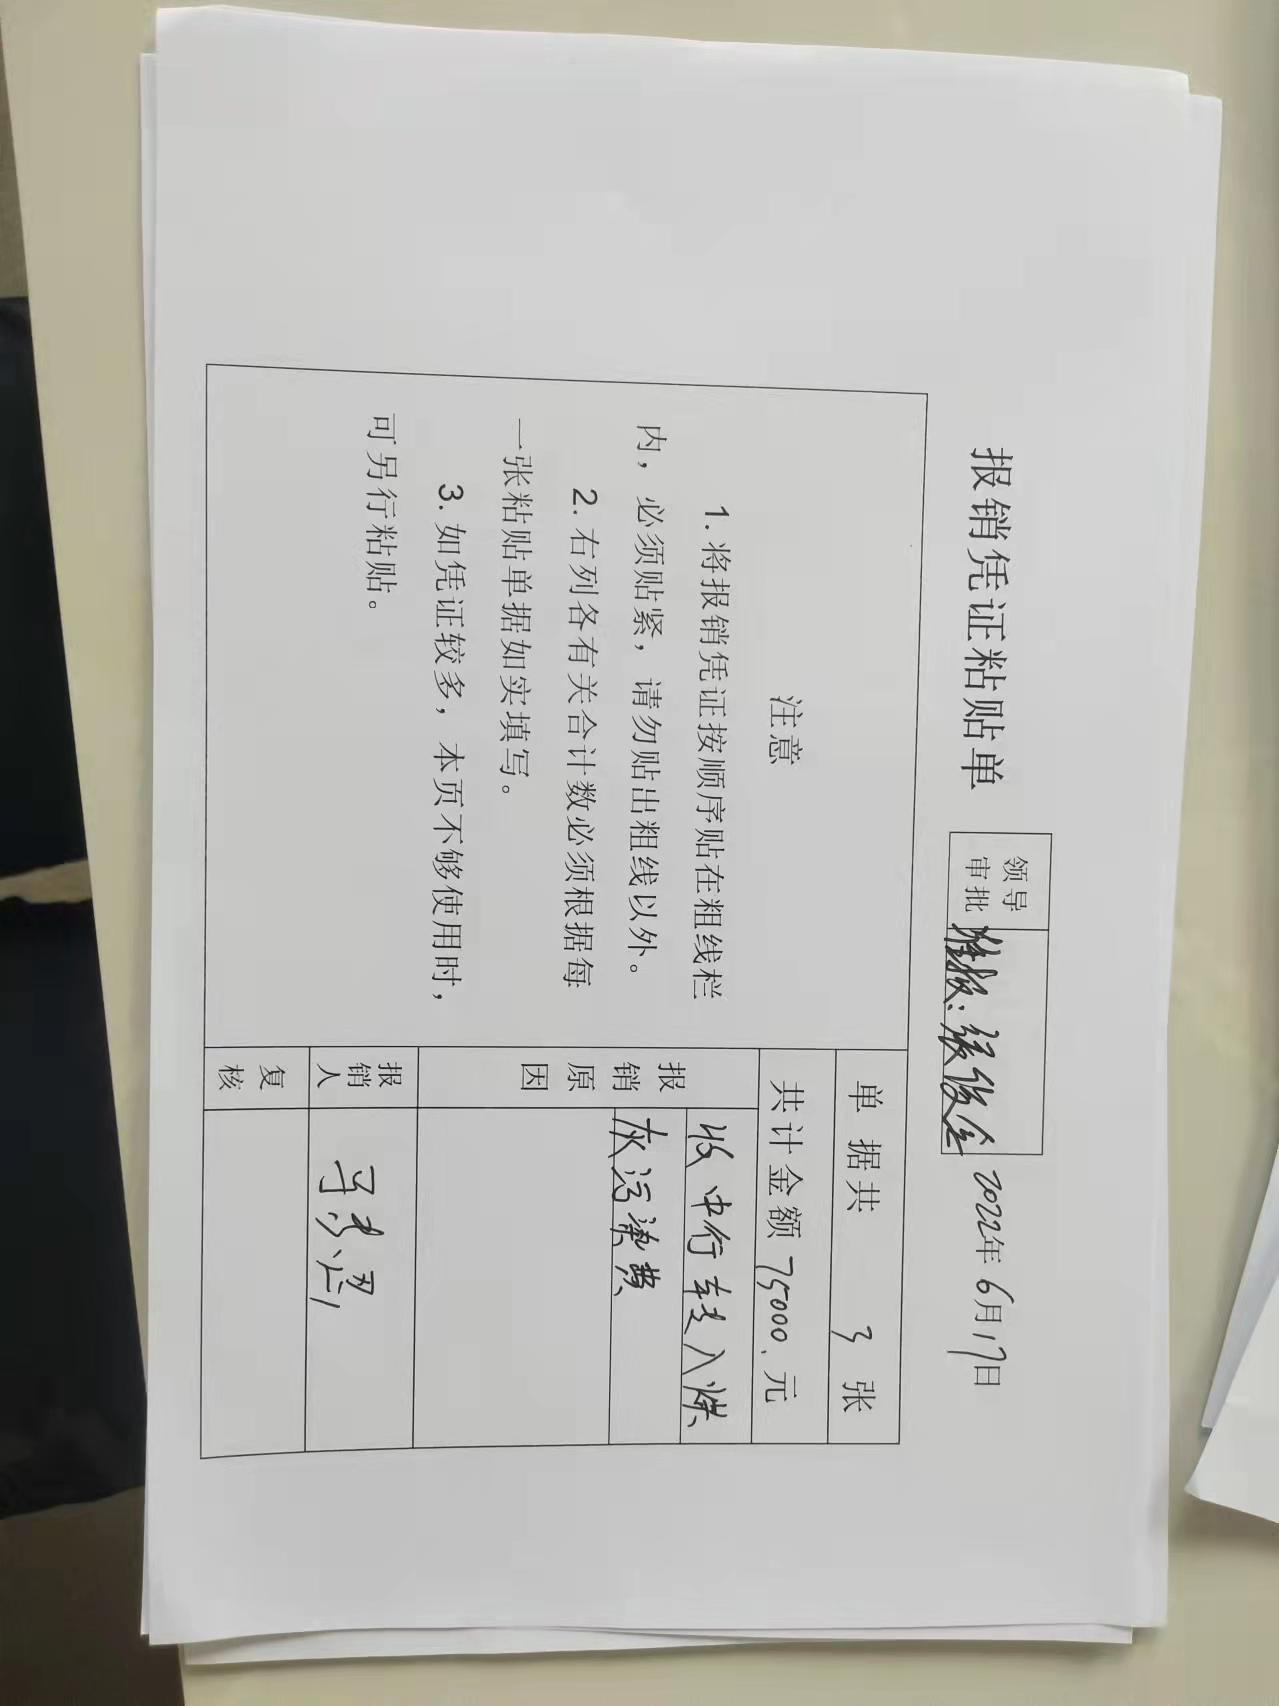 报销凭证粘贴单
领导
审批
准报：张俊全
2022年6月17日
注意
1. 将报销凭证按顺序贴在粗线栏
内，必须贴紧，请勿贴出粗线以外。
2. 右列各有关合计数必须根据每
一张粘贴单据如实填写。
3. 如凭证较多，本页不够使用时，
可另行粘贴。
单据共 3 张
共计金额 75000.元
报销原因
收中行转入烘
灰污染费
报销人
复核